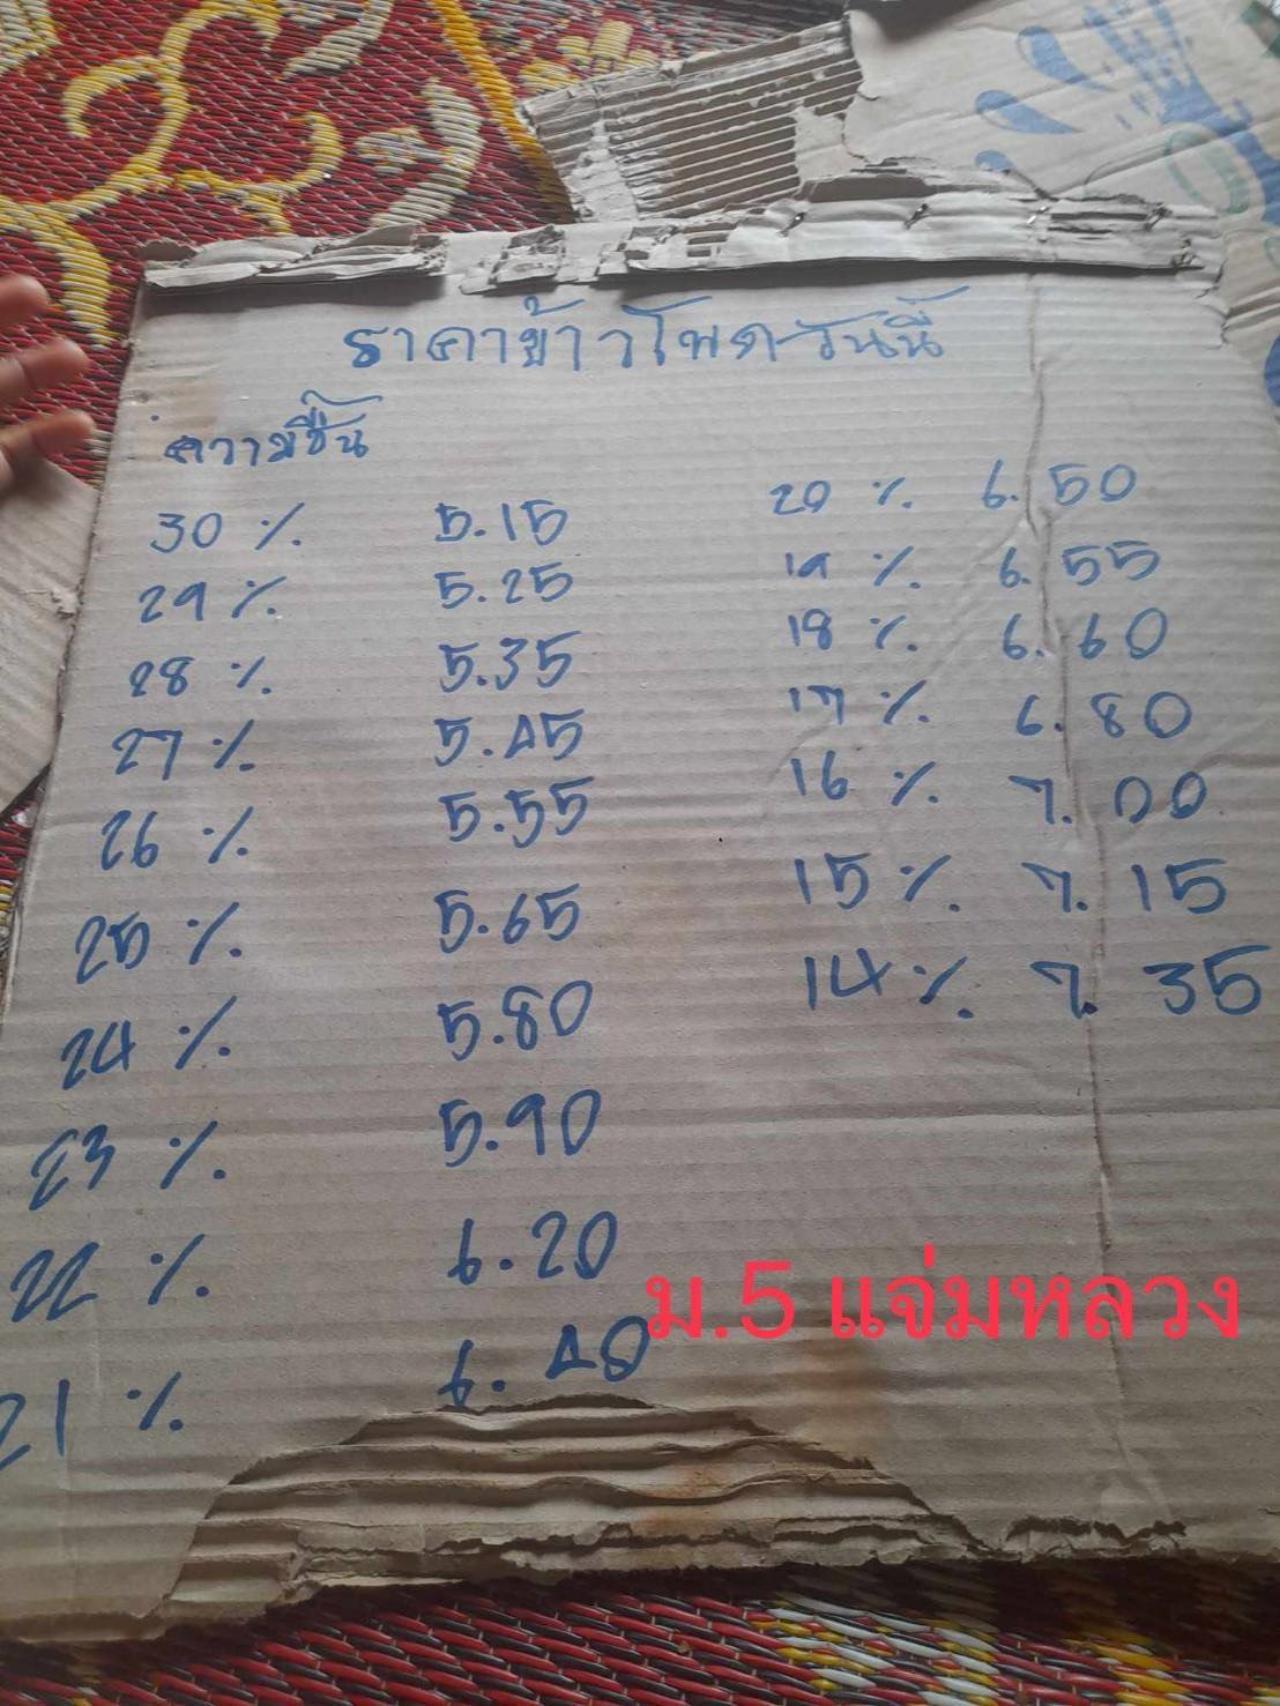 ราคาข้าวโพดวันนี้
ความชื้น
30 % 5.15
29 % 5.25
28 % 5.35
27 % 5.45
26 % 5.55
25 % 5.65
24 % 5.80
23 % 5.90
22 % 6.20
21 % 6.40
20 % 6.50
19 % 6.55
18 % 6.60
17 % 6.80
16 % 7.00
15 % 7.15
14 % 7.35
ม.5 แจ่มหลวง